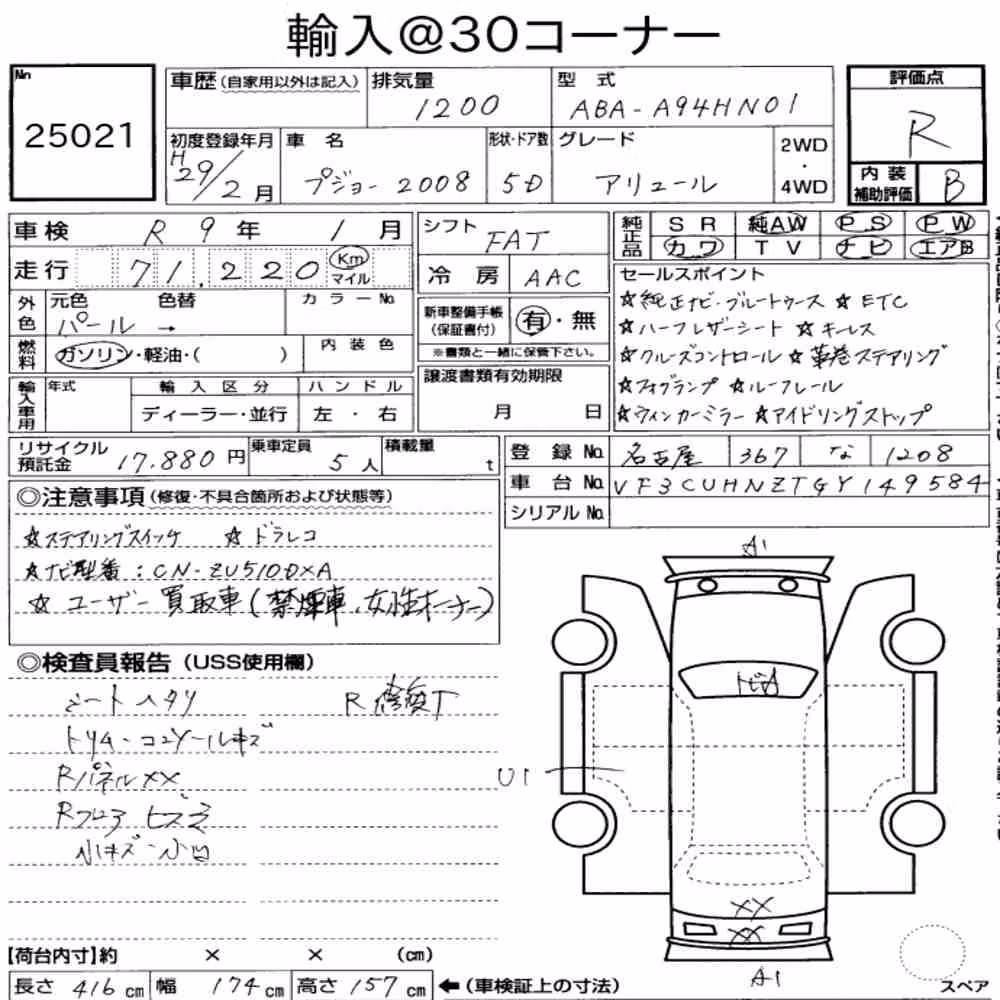 輸入@30コーナー
No
25021
車歴(自家用以外は記入)
排気量
1200
型式
ABA-A94HN01
評価点
R
初度登録年月
H 29/2月
車名
プジョー2008
形状・ドア数
5D
グレード
アリュール
2WD
・
4WD
内装
補助評価
B
車検 R 9年 1月
走行 71,220 Km
マイル
シフト
FAT
冷房
AAC
純正品
SR 純AW PS PW
カワ TV ナビ エアB
外色
元色 色替
パール →
カラーNo
燃料
ガソリン・軽油・( )
内装色
新車整備手帳
(保証書付)
有・無
※書類と一緒に保管下さい。
セールスポイント
☆純正ナビ・ブルートゥース ☆ETC
☆ハーフレザーシート ☆キーレス
☆クルーズコントロール ☆革巻ステアリング
☆フォグランプ ☆ルーフレール
☆ウィンカーミラー ☆アイドリングストップ
輸入車用
年式
輸入区分
ディーラー・並行
ハンドル
左・右
譲渡書類有効期限
月 日
リサイクル
預託金
17,880円
乗車定員
5人
積載量
t
登録No 名古屋 367 な 1208
車台No VF3CUHNZTGY149584
シリアルNo
◎注意事項(修復・不具合箇所および状態等)
☆ステアリングスイッチ ☆ドラレコ
☆ナビ型番:CN-ZU510DXA
☆ユーザー買取車(禁煙車、女性オーナー)
◎検査員報告(USS使用欄)
シートヘタリ
R修復
トリム・コンソールキズ
Rパネル××
Rフロア ヒズミ
小キズ・小凹
A1
U1
××
××
A1
スペア
【荷台内寸】約 × × (cm)
長さ 416cm 幅 174cm 高さ 157cm ←(車検証上の寸法)